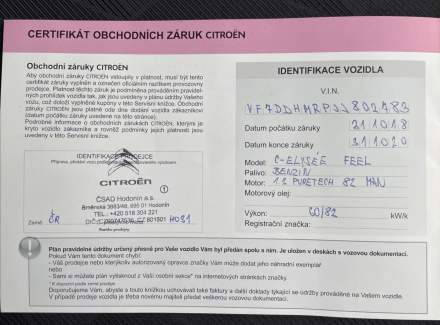 CERTIFIKÁT OBCHODNÍCH ZÁRUK CITROËN
Obchodní záruky CITROËN
Aby obchodní záruky CITROËN vstoupily v platnost, musí být tento
certifikát záruky vyplněn a označen oficiálním razítkem provozovny
prodejce. Platnost těchto záruk je podmíněna prováděním pravidel-
ných prohlídek vozidla tak, jak jsou uvedeny v plánu údržby Vašeho
vozu, což doloží vyplněné kupóny v této Servisní knížce. Obchodní
záruky CITROËN jsou platné ode dne dodání vozidla zákazníkovi
(datum počátku záruky uvedené na této stránce).
Podrobné informace o obchodních zárukách CITROËN, kterými je
kryto vozidlo zákazníka a rovněž podmínky jejich platnosti jsou
uvedeny v této Servisní knížce.
IDENTIFIKACE PRODEJCE
CITROËN
1
ČSAD Hodonín a.s.
Brněnská 3883/48, 695 01 Hodonín
TEL.: +420 518 304 221
Země: ČR
H031
IDENTIFIKACE VOZIDLA
V.I.N.
VF7DDHMRPJJ802483
Datum počátku záruky 211018
Datum konce záruky 311020
Model: C-ELYSÉE FEEL
Palivo: BENZIN
Motor: 1.2 PURETECH 82 MAN
Motorový olej:
Výkon: 60/82 kW/k
Registrační značka:
Plán pravidelné údržby určený přesně pro Vaše vozidlo Vám byl předán spolu s ním. Je uložen v deskách s vozovou dokumentací.
Pokud Vám tento dokument chybí:
- Váš prodejce nebo kterýkoliv autorizovaný opravce značky Vám může dodat jeho náhradní exemplář
nebo
- Sami si můžete plán vytisknout z Vaší osobní sekce* na internetových stránkách značky.
* K dispozici podle země prodejce
Doporučujeme Vám, abyste s touto knížkou uchovávali také faktury a další doklady týkající se údržby prováděné na Vašem vozidle.
V případě prodeje vozidla je třeba novému majiteli předat veškerou vozovou dokumentaci.